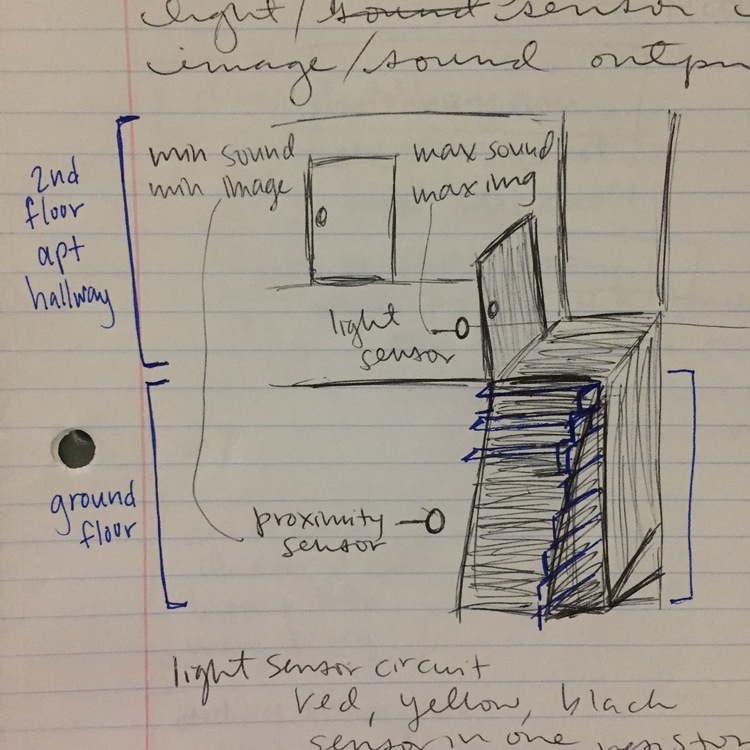 light/sound sensor
image/sound outpu
2nd
floor
apt
hallway
min sound
min image
max sound
max img
light
sensor
ground
floor
proximity
sensor
light sensor circuit
red, yellow, black
sensor in one resistor